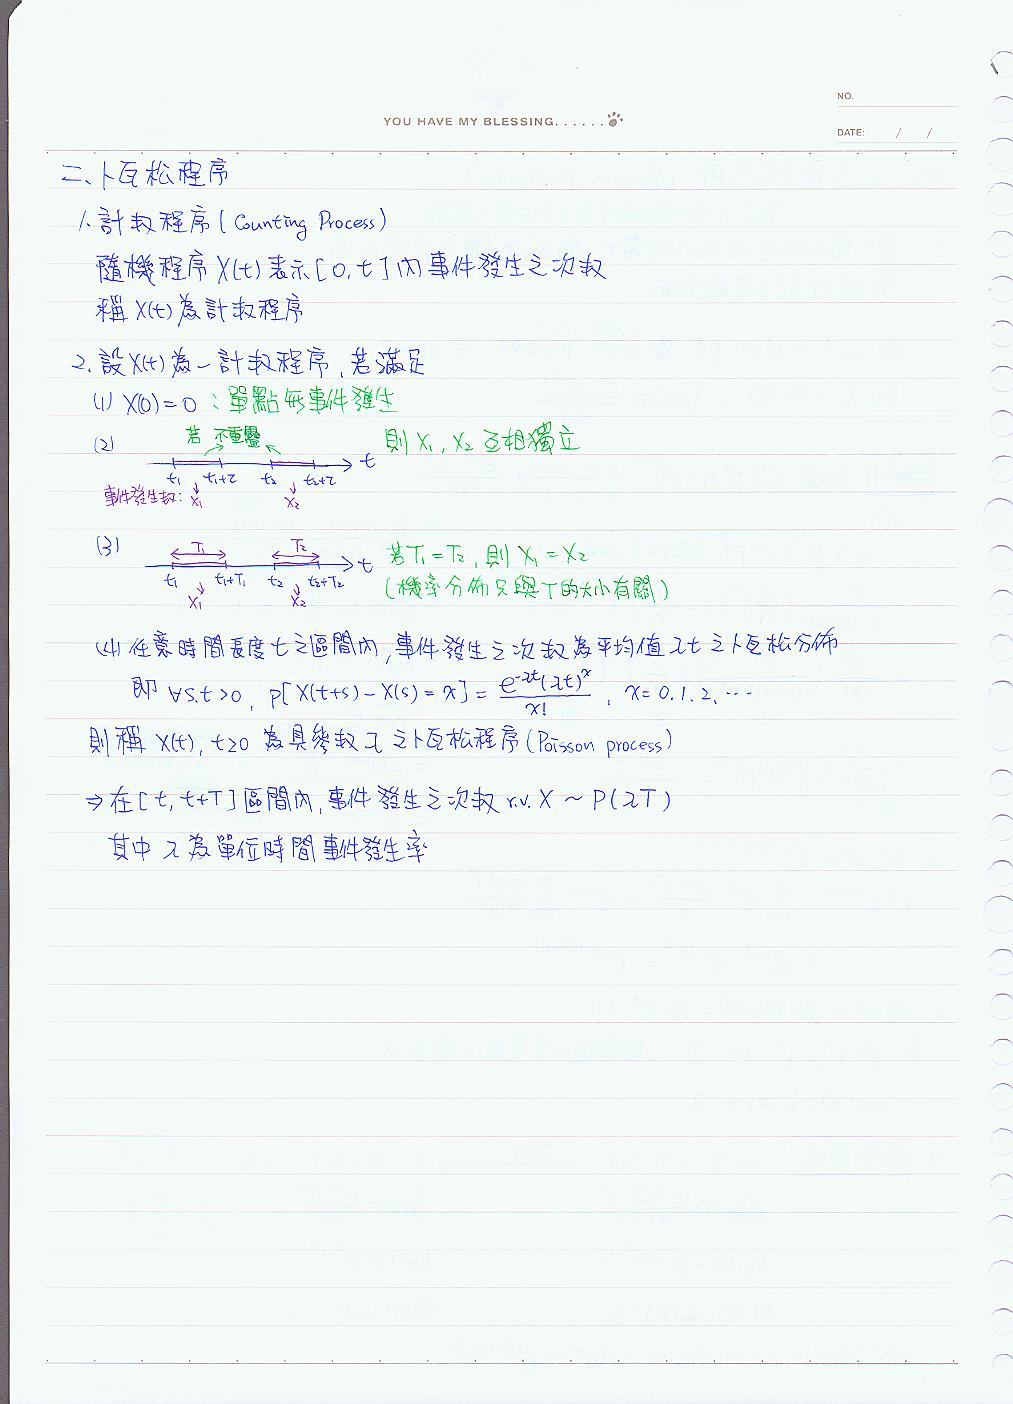 NO.
YOU HAVE MY BLESSING......
DATE: / /
二、卜瓦松程序
1. 計数程序(Counting Process)
隨機程序 X(t) 表示[0, t]內事件發生之次数
稱 X(t) 為計数程序
2. 設X(t)為一計数程序, 若滿足
(1) X(0)=0 :單點無事件發生
(2) 若 不重疊 則 X₁, X₂ 互相獨立
t
t₁ t₁+τ t₂ t₂+τ
事件發生数: X₁ X₂
(3) T₁ T₂ 若T₁=T₂, 則 X₁=X₂
t
t₁ t₁+T₁ t₂ t₂+T₂ (機率分佈只與T的大小有關)
X₁ X₂
(4) 任意時間長度 t 之區間內, 事件發生之次数為平均值 λt 之卜瓦松分佈
即 ∀s,t>0, p[X(t+s)-X(s)=x]= e^{-λt}(λt)^x / x! , x=0.1.2. ...
則稱 X(t), t≥0 為具參数 λ 之卜瓦松程序(Poisson process)
⇒ 在[t, t+T]區間內, 事件發生之次数 r.v. X ~ P(λT)
其中 λ 為單位時間事件發生率